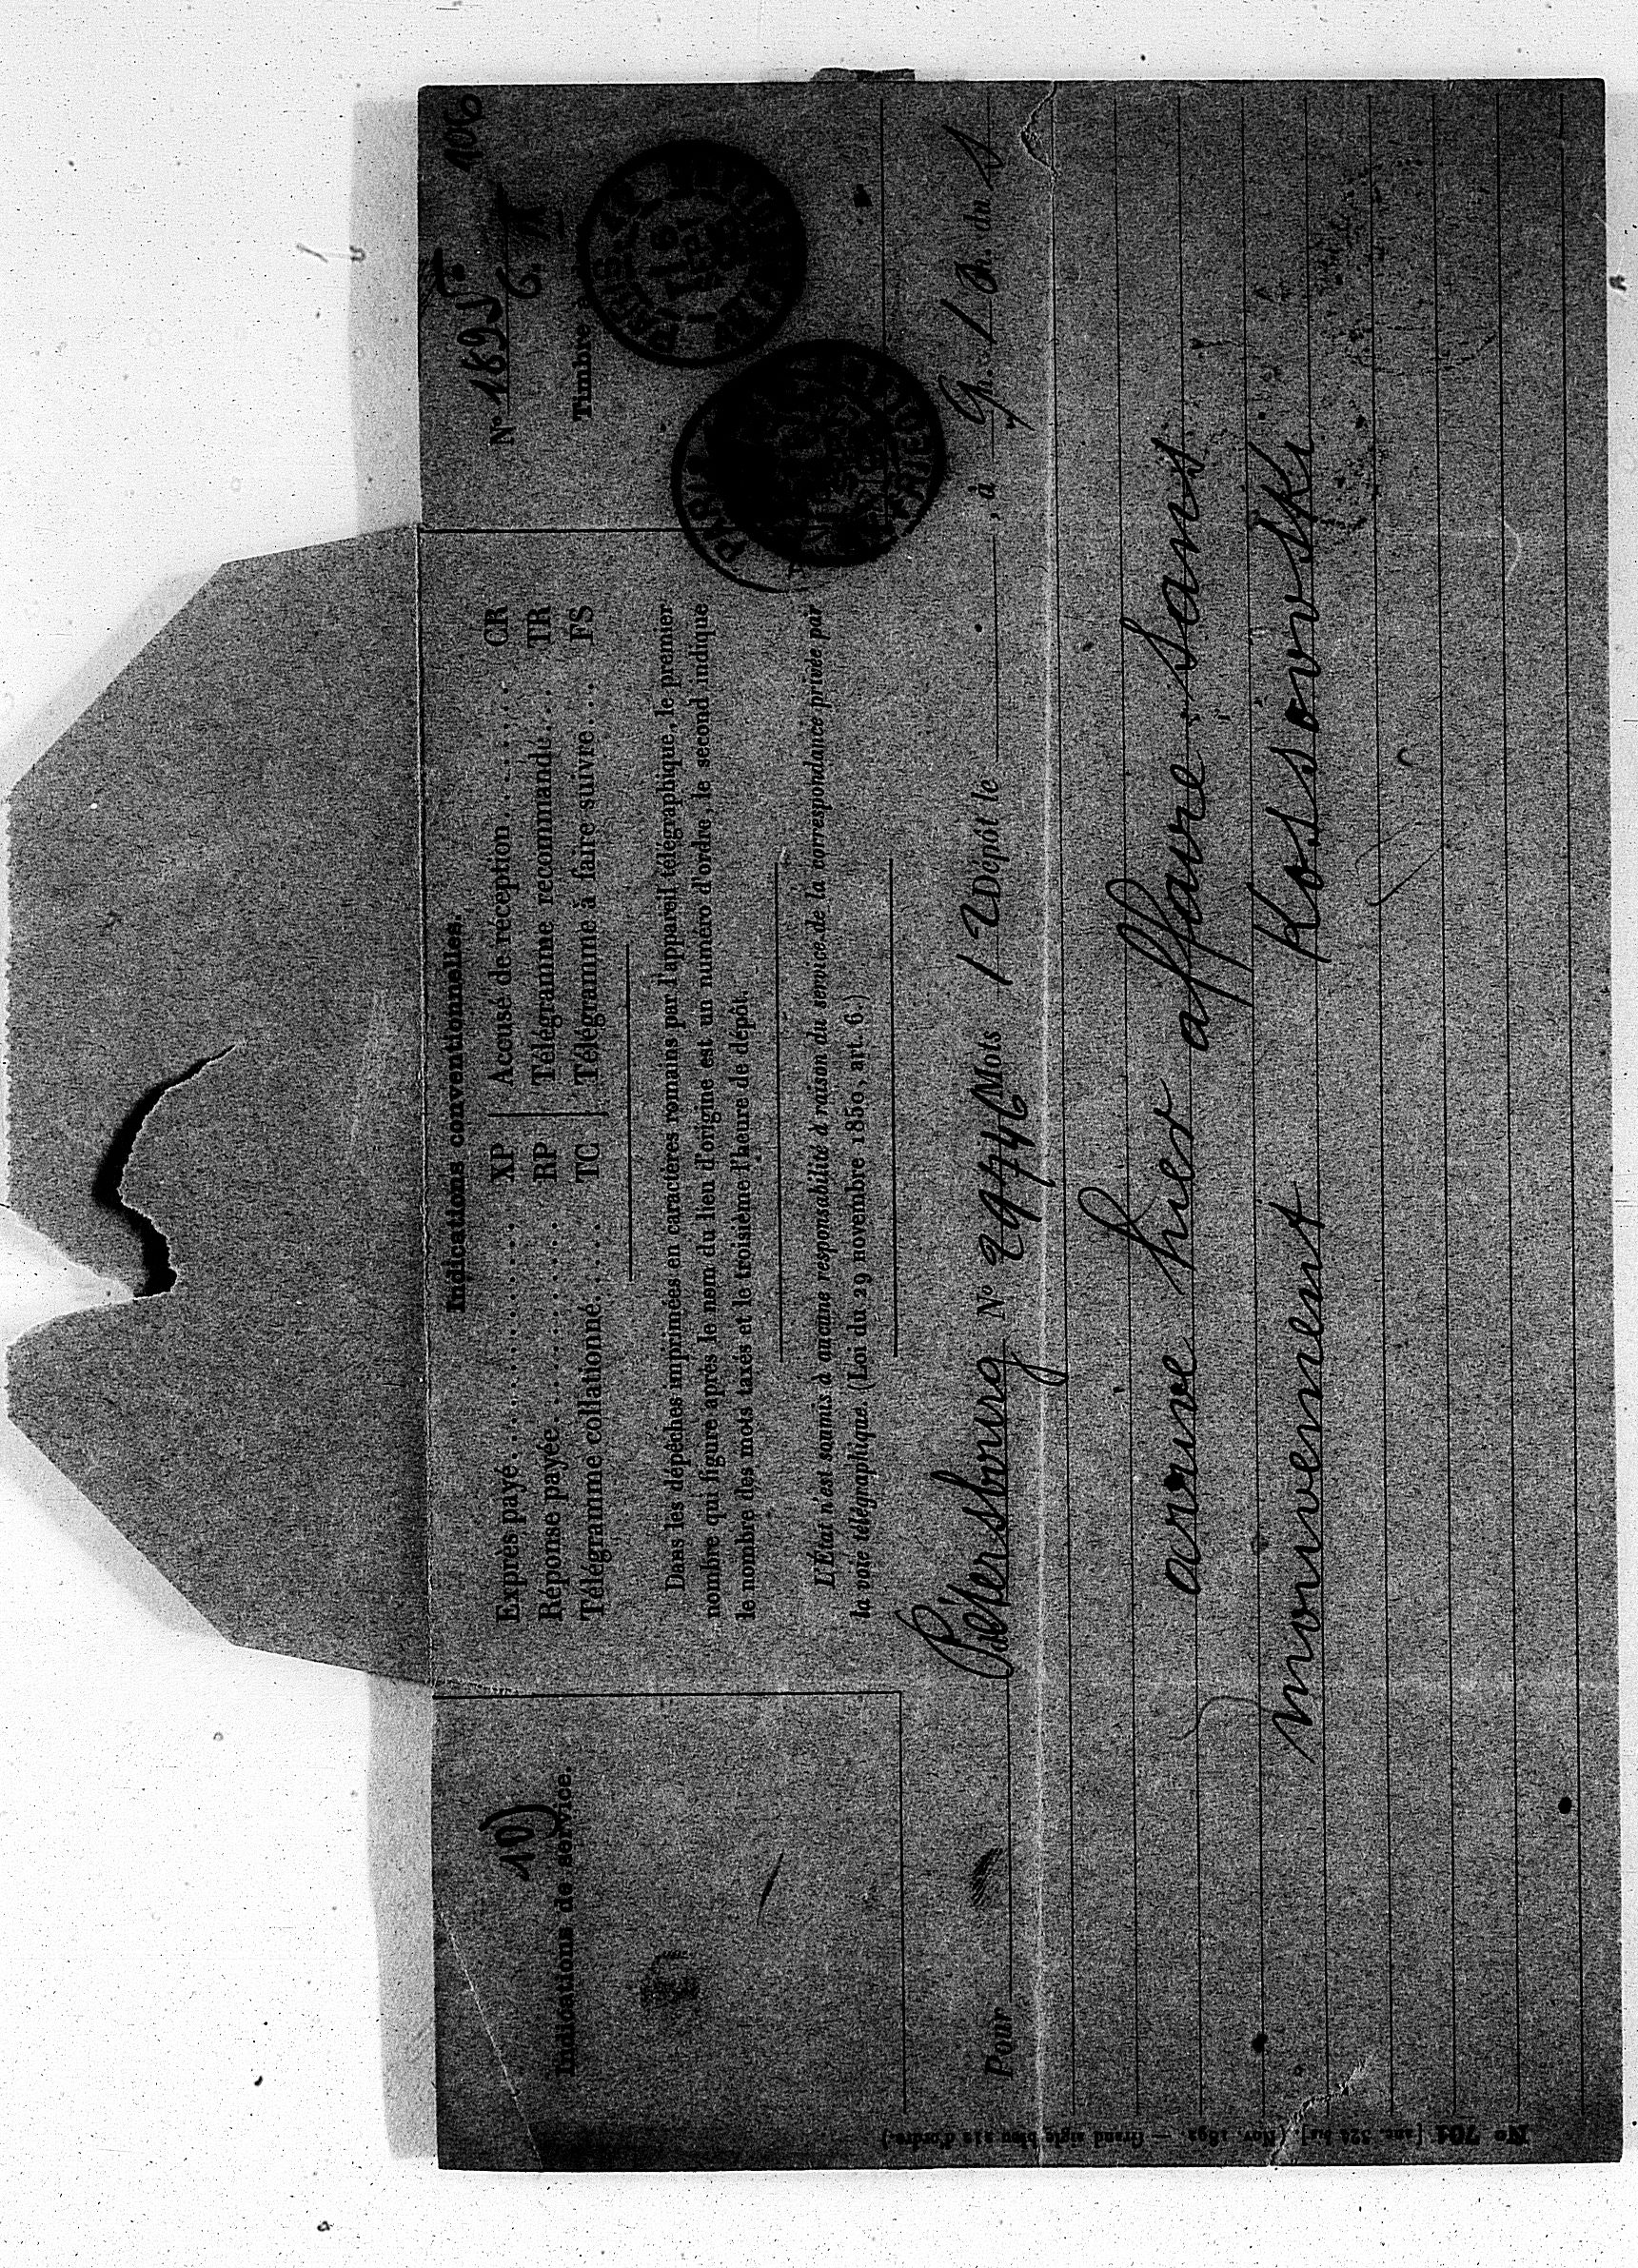 106
10)
Indications de service.
Indications conventionnelles.
Exprès payé.......... XP | Accusé de réception....... CR
Réponse payée.......... RP | Télégramme recommandé... TR
Télégramme collationné..... TC | Télégramme à faire suivre... FS
Dans les dépêches imprimées en caractères romains par l'appareil télégraphique, le premier
nombre qui figure après le nom du lieu d'origine est un numéro d'ordre, le second indique
le nombre des mots taxés et le troisième l'heure de dépôt.
L'État n'est soumis à aucune responsabilité à raison du service de la correspondance privée par
la voie télégraphique. (Loi du 29 novembre 1850, art. 6.)
N° 1895.
6. X
Timbre à
PARIS
Pour Pétersbourg N° 29446 Mots 12 Dépôt le , à 9 h. 1 m. du s
arrive hier affaire sans
mouvement Kossowski
N° 701 [anc. 324 bis]. (Nov. 1892. — Grand aigle bleu 212 d'ordre.)